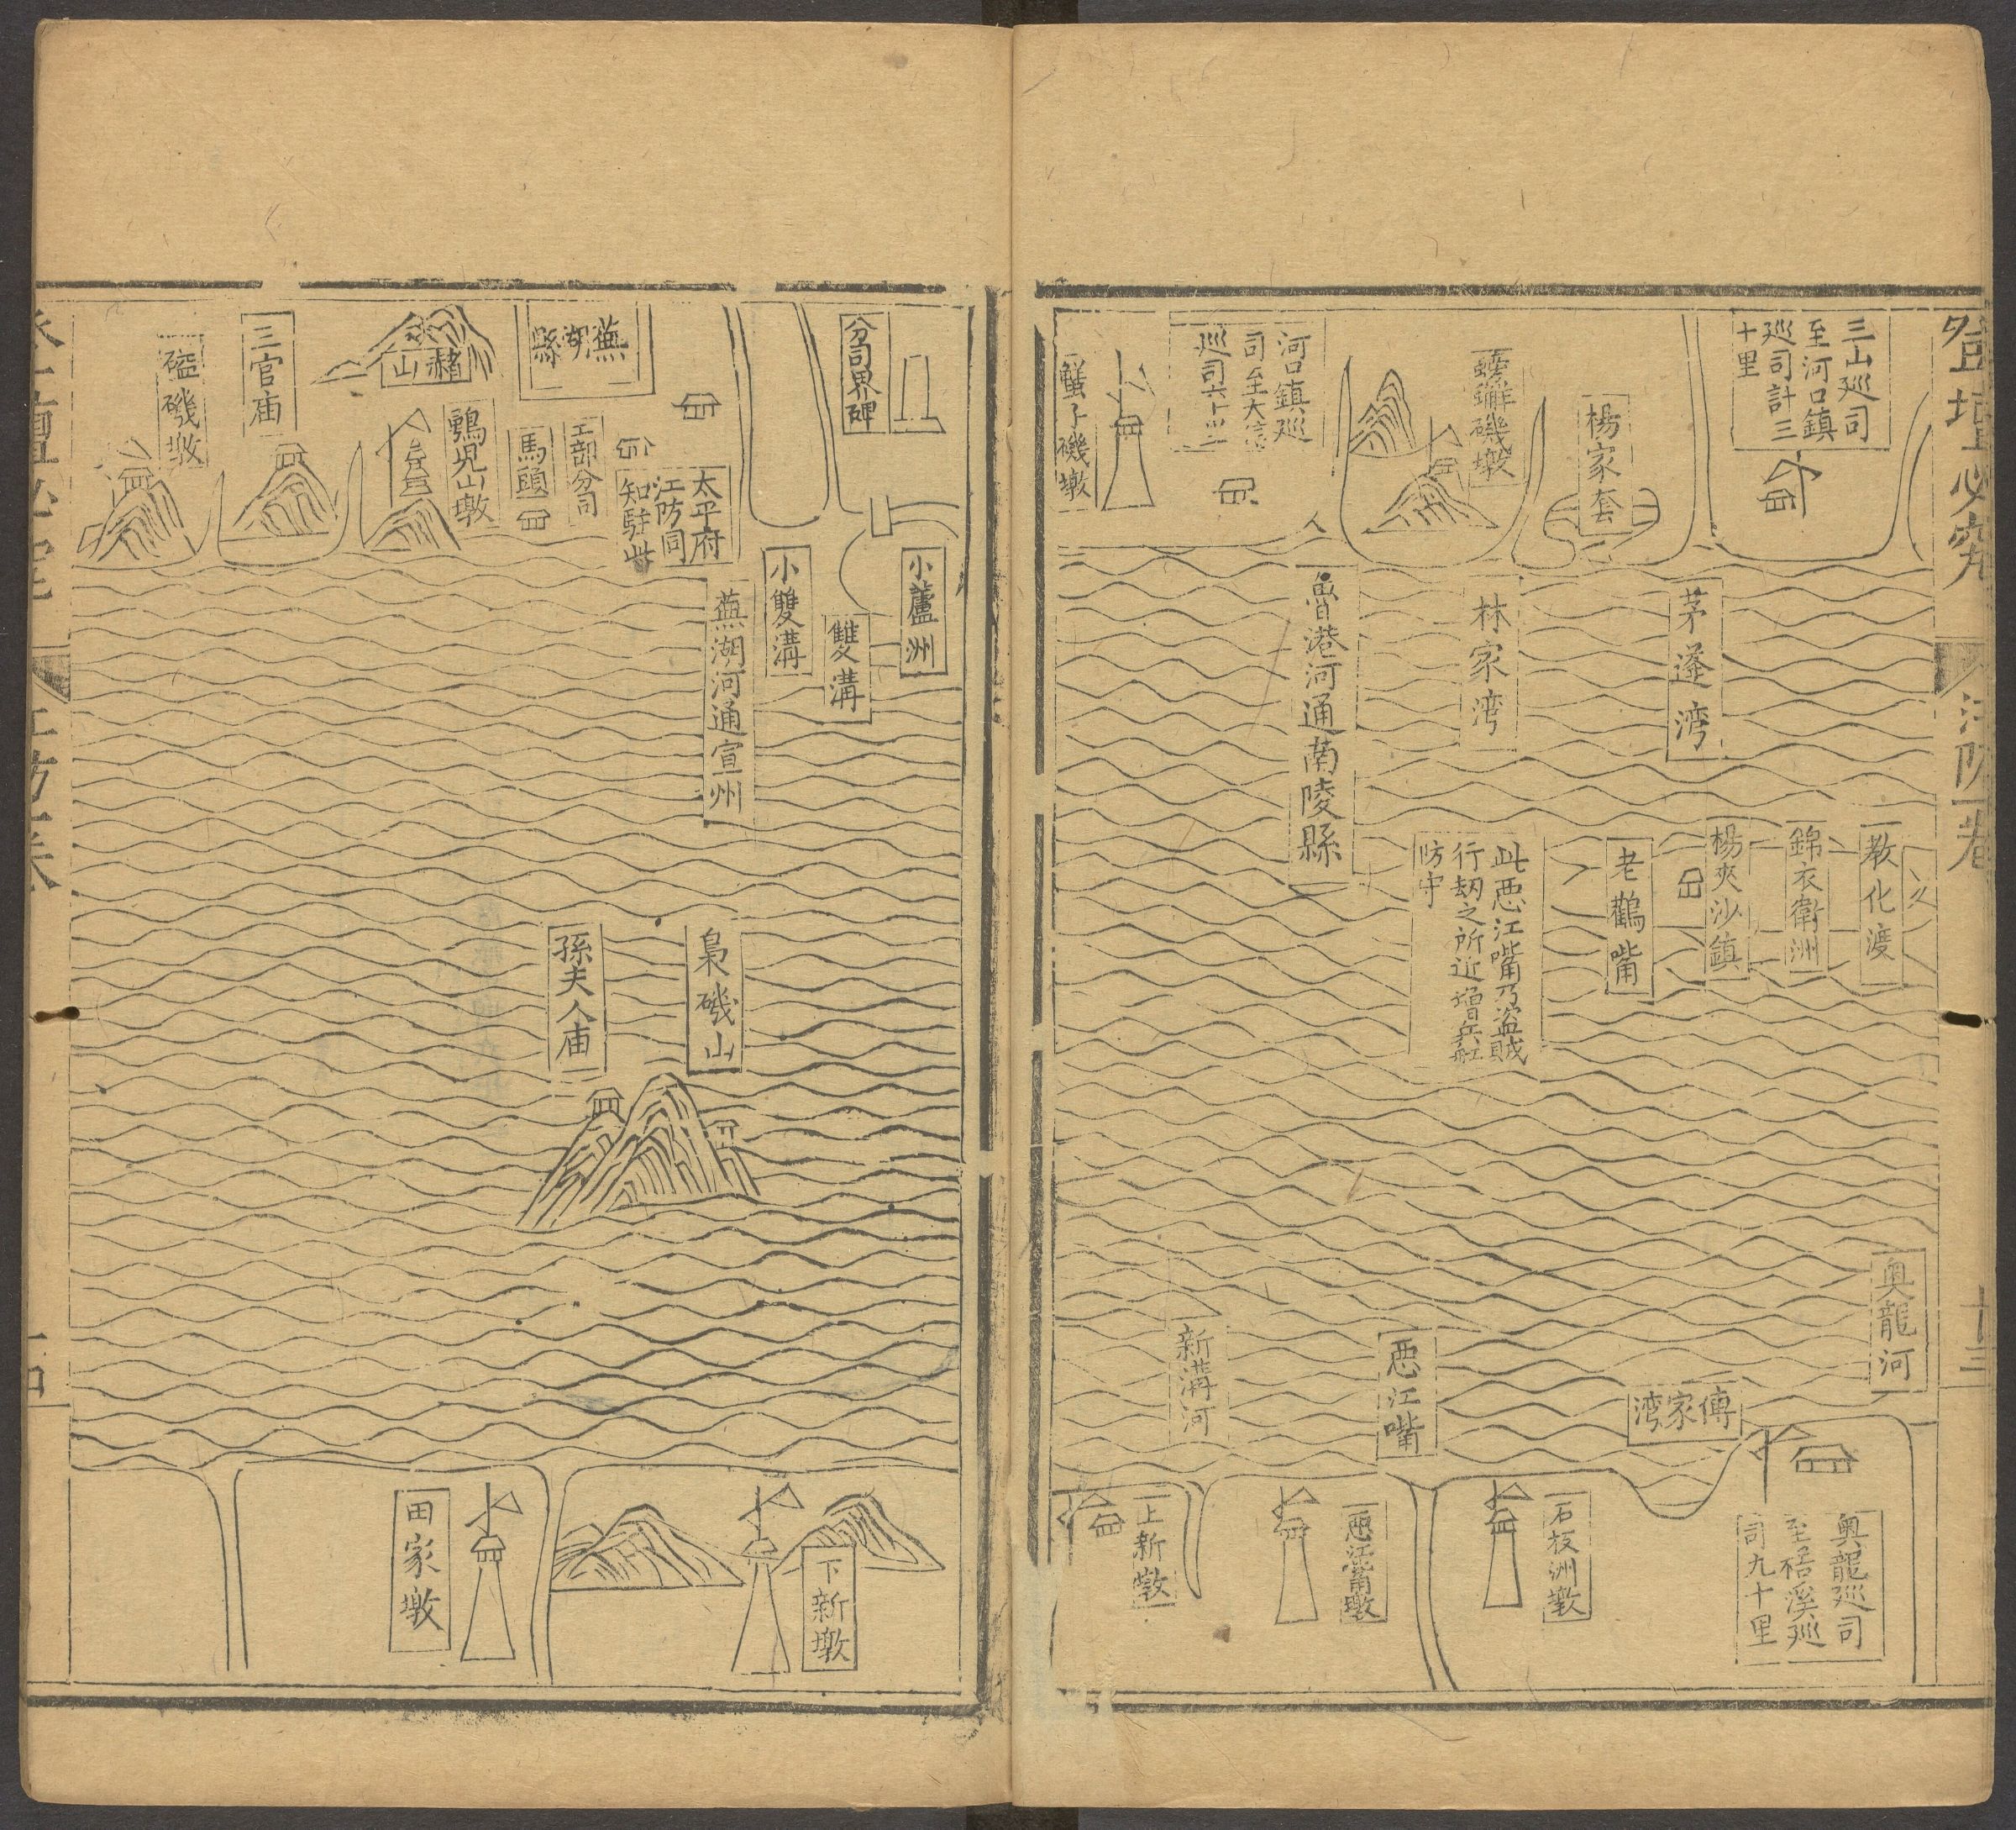 登壇必究
江防一卷
十三
三山巡司
至河口鎮
巡司計三
十里
楊家套
磯墩
河口鎮巡
司至大信
巡司六十里
蟹子磯墩
茅蓬湾
林家湾
魯港河通南陵縣
教化渡
錦衣衛洲
楊夾沙鎮
老鸛嘴
此惡江嘴乃盜賊
行刼之所近增兵船
防守
奥龍河
傅家湾
惡江嘴
新溝河
奥龍巡司
至梧溪巡
司九十里
石板洲墩
惡江嘴墩
上新墩
分司界碑
蕪湖縣
赭山
三官庙
磁磯墩
鶚児山墩
馬頭
工部分司
太平府
江防同
知駐此
小蘆洲
雙溝
小雙溝
蕪湖河通宣州
梟磯山
孫夫人庙
下新墩
田家墩